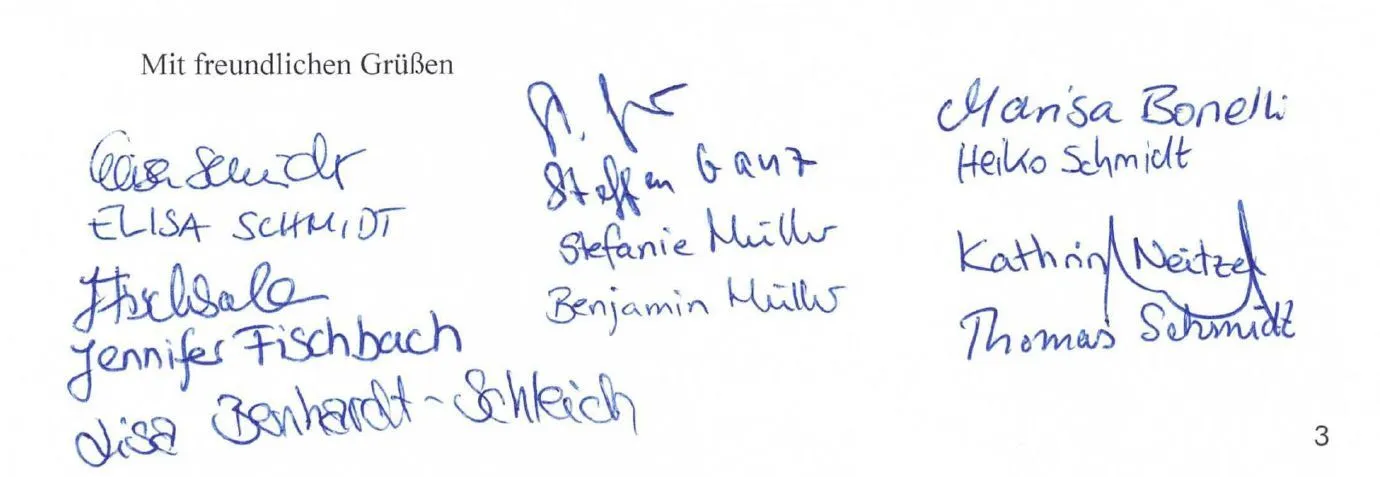 Mit freundlichen Grüßen
Elisa Schmidt
ELISA SCHMIDT
Jennifer Fischbach
Lisa Benhardt-Schleich
Steffen Ganz
Stefanie Müller
Benjamin Müller
Marisa Bonelli
Heiko Schmidt
Kathrin Neitzel
Thomas Schmidt
3